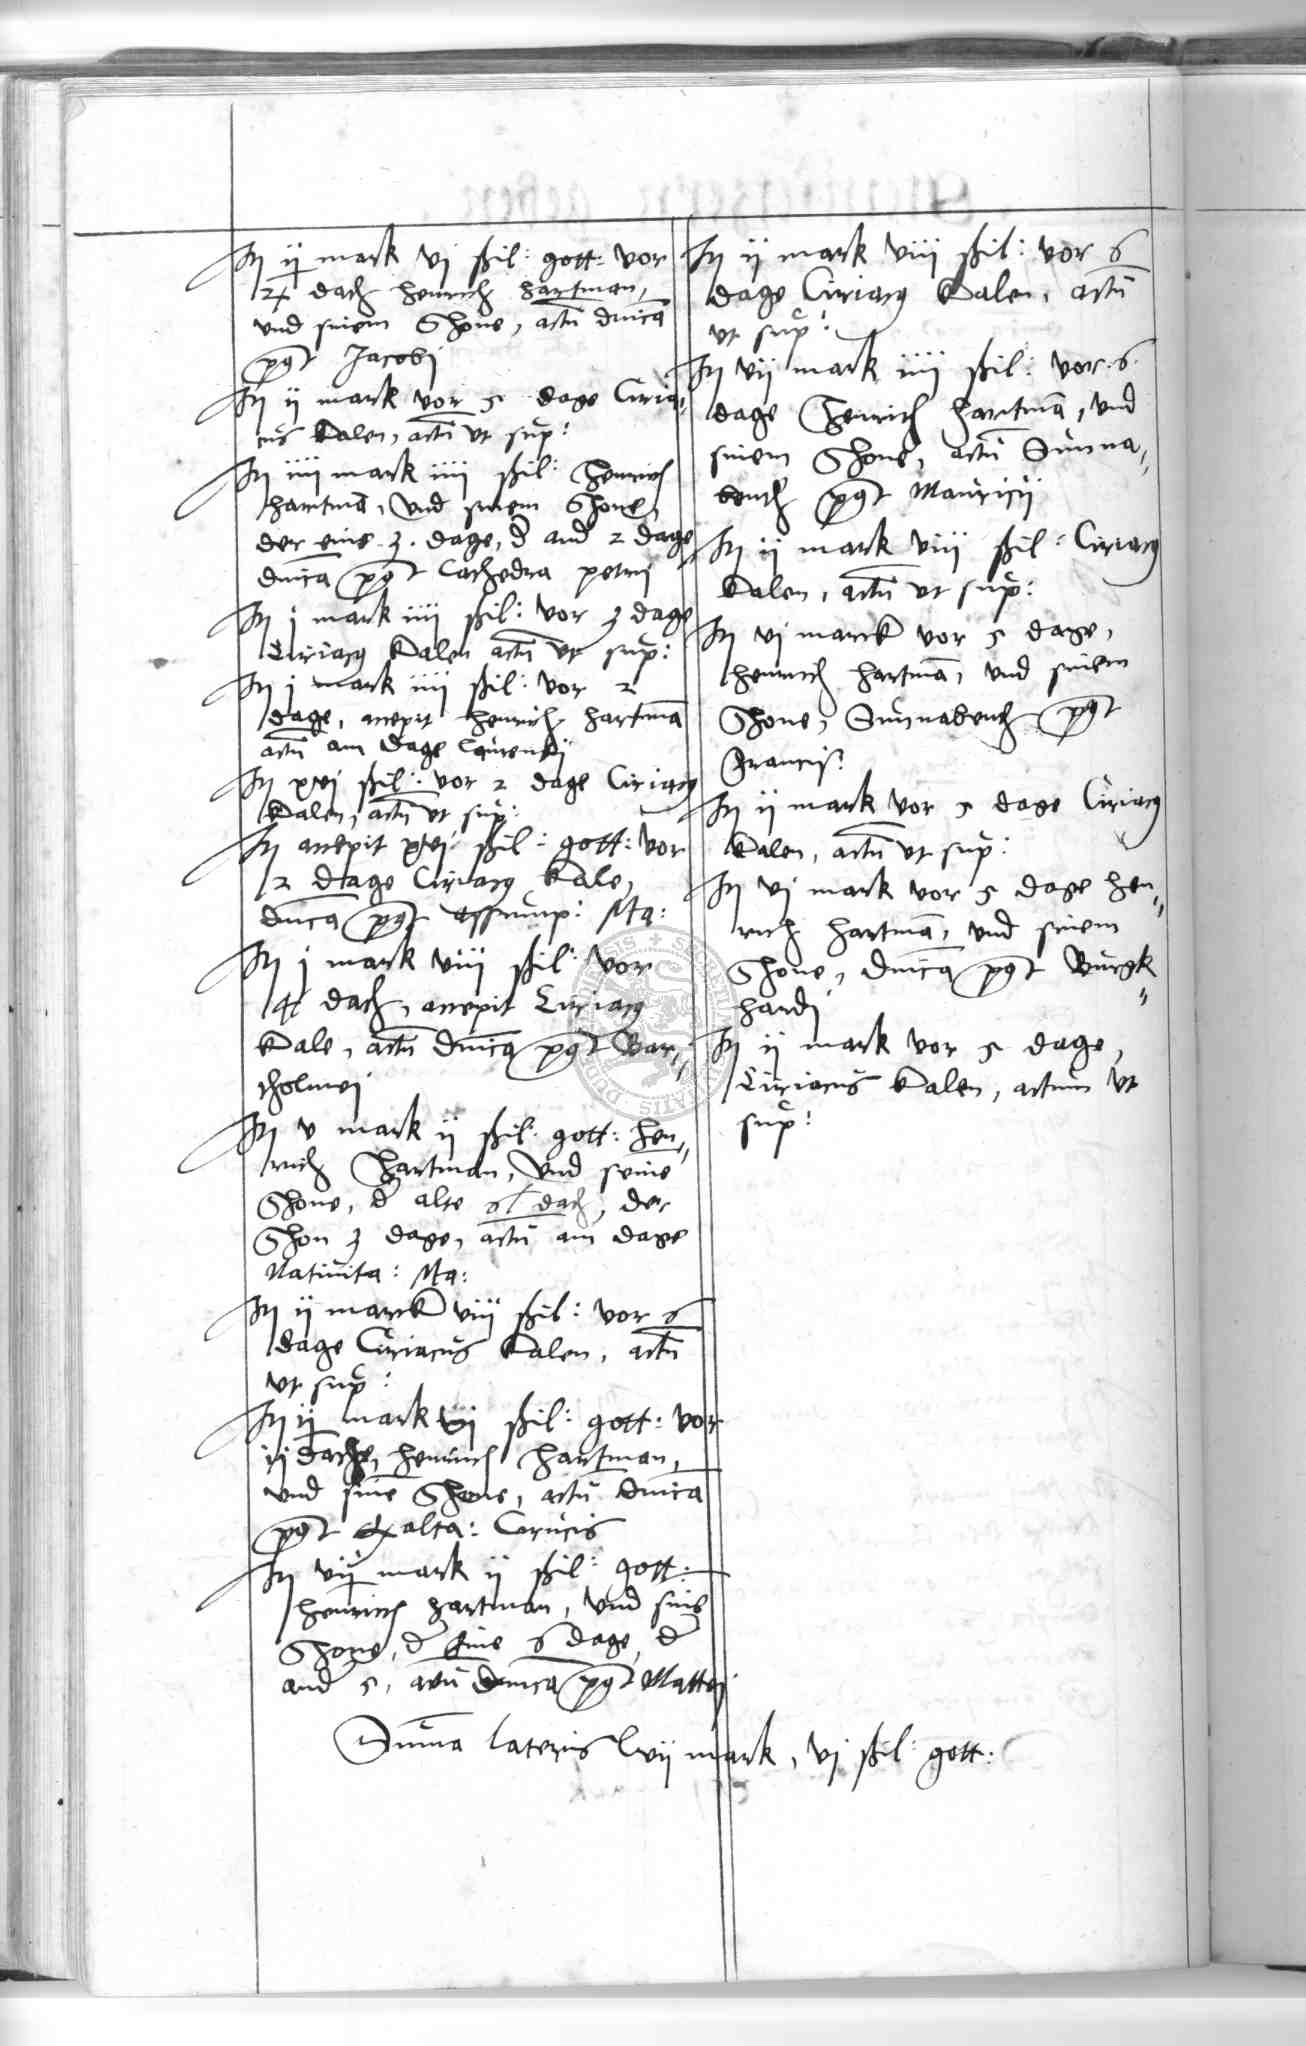 Itm ij mark vj ßil: gott: vor
2½ dach henrich hartman,
vnd sinem Shone, actũ dnica
post Jacobi
Itm ij mark vor 5 dage Ciria„
cus kalen, actũ vt sup:
Itm iiij mark iiij ßil: henrich
hartmã, vnd sinem Shone,
der eine 3. dage, d and 2 dage
dnica post Cathedra petri
Itm j mark iiij ßil: vor 3 dage
Ciriacy kalen actũ vt sup:
Itm j mark iiij ßil: vor 2
dage, accepit henrich hartmã
actũ am dage Laurentij
Itm xvj ßil: vor 2 dage Ciriacy
kalen, actũ vt sup:
Itm accepit xvj ßil: gott: vor
2 dage Ciriacy kale,
dnica post assump: Ma:
Itm j mark viij ßil: vor
4 dach, accepit Ciriacy
kale, actũ dnica post Bar„
tholmei
Itm v mark ij ßil: gott: hen„
rich hartman, vnd seine
Shone, d alte dach, der
Shon 3 dage, actũ am dage
Natiuita: Ma:
Itm ij marck viij ßil: vor 6
dage Ciriacus kalen, actũ
vt sup:
Itm ij mark vj ßil: gott: vor
ij dache, henrich hartman,
vnd sinẽ Shone, actũ dnica
post Exalta: Crucis
Itm vij mark ij ßil: gott:
henrich hartman, vnd sins
Shone, d eine 6 dage, d
and 5, actũ dnica post Mattej
Itm ij mark viij ßil: vor 6
dage Ciriacy kalen, actũ
vt sup:
Itm vij mark iiij ßil: vor .6.
dage henrich hartmã, vnd
sinem Shone, actũ Sunna„
bend post Mauricij
Itm ij mark viij ßil: Ciriacy
kalen, actũ vt sup:
Itm vj marck vor 5 dage,
henrich hartmã, vnd sinem
Shone, Sunnabend post
Francis:
Itm ij mark vor 5 dage Ciriacy
kalen, actũ vt sup:
Itm vj mark vor 5 dage hen„
rich hartmã, vnd sinem
Shone, dnica post Burgk„
hardi
Itm ij mark vor 5 dage,
Ciriacus kalen, actum vt
sup:
Suma lateris lvij mark, vj ßil: gott: